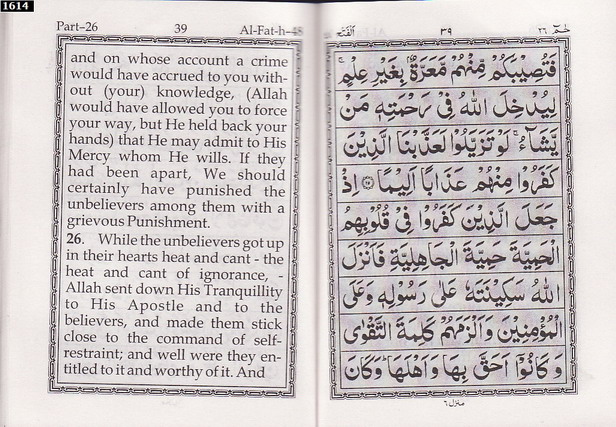 1614
Part–26 39 Al-Fat-h-48
and on whose account a crime
would have accrued to you with-
out (your) knowledge, (Allah
would have allowed you to force
your way, but He held back your
hands) that He may admit to His
Mercy whom He wills. If they
had been apart, We should
certainly have punished the
unbelievers among them with a
grievous Punishment.
26. While the unbelievers got up
in their hearts heat and cant - the
heat and cant of ignorance, -
Allah sent down His Tranquillity
to His Apostle and to the
believers, and made them stick
close to the command of self-
restraint; and well were they en-
titled to it and worthy of it. And
الفتح ٣٩ حٰمٓ ٢٦
فَتُصِيْبَكُمْ مِّنْهُمْ مَّعَرَّةٌۢ بِغَيْرِ عِلْمٍ ۚ
لِيُدْخِلَ اللّٰهُ فِىْ رَحْمَتِهٖ مَنْ
يَّشَآءُ ۚ لَوْ تَزَيَّلُوْا لَعَذَّبْنَا الَّذِيْنَ
كَفَرُوْا مِنْهُمْ عَذَابًا اَلِيْمًا ﴿٢٥﴾ اِذْ
جَعَلَ الَّذِيْنَ كَفَرُوْا فِىْ قُلُوْبِهِمُ
الْحَمِيَّةَ حَمِيَّةَ الْجَاهِلِيَّةِ فَاَنْزَلَ
اللّٰهُ سَكِيْنَتَهٗ عَلٰى رَسُوْلِهٖ وَعَلَى
الْمُؤْمِنِيْنَ وَاَلْزَمَهُمْ كَلِمَةَ التَّقْوٰى
وَكَانُوْۤا اَحَقَّ بِهَا وَاَهْلَهَا ؕ وَكَانَ
منزل ٦